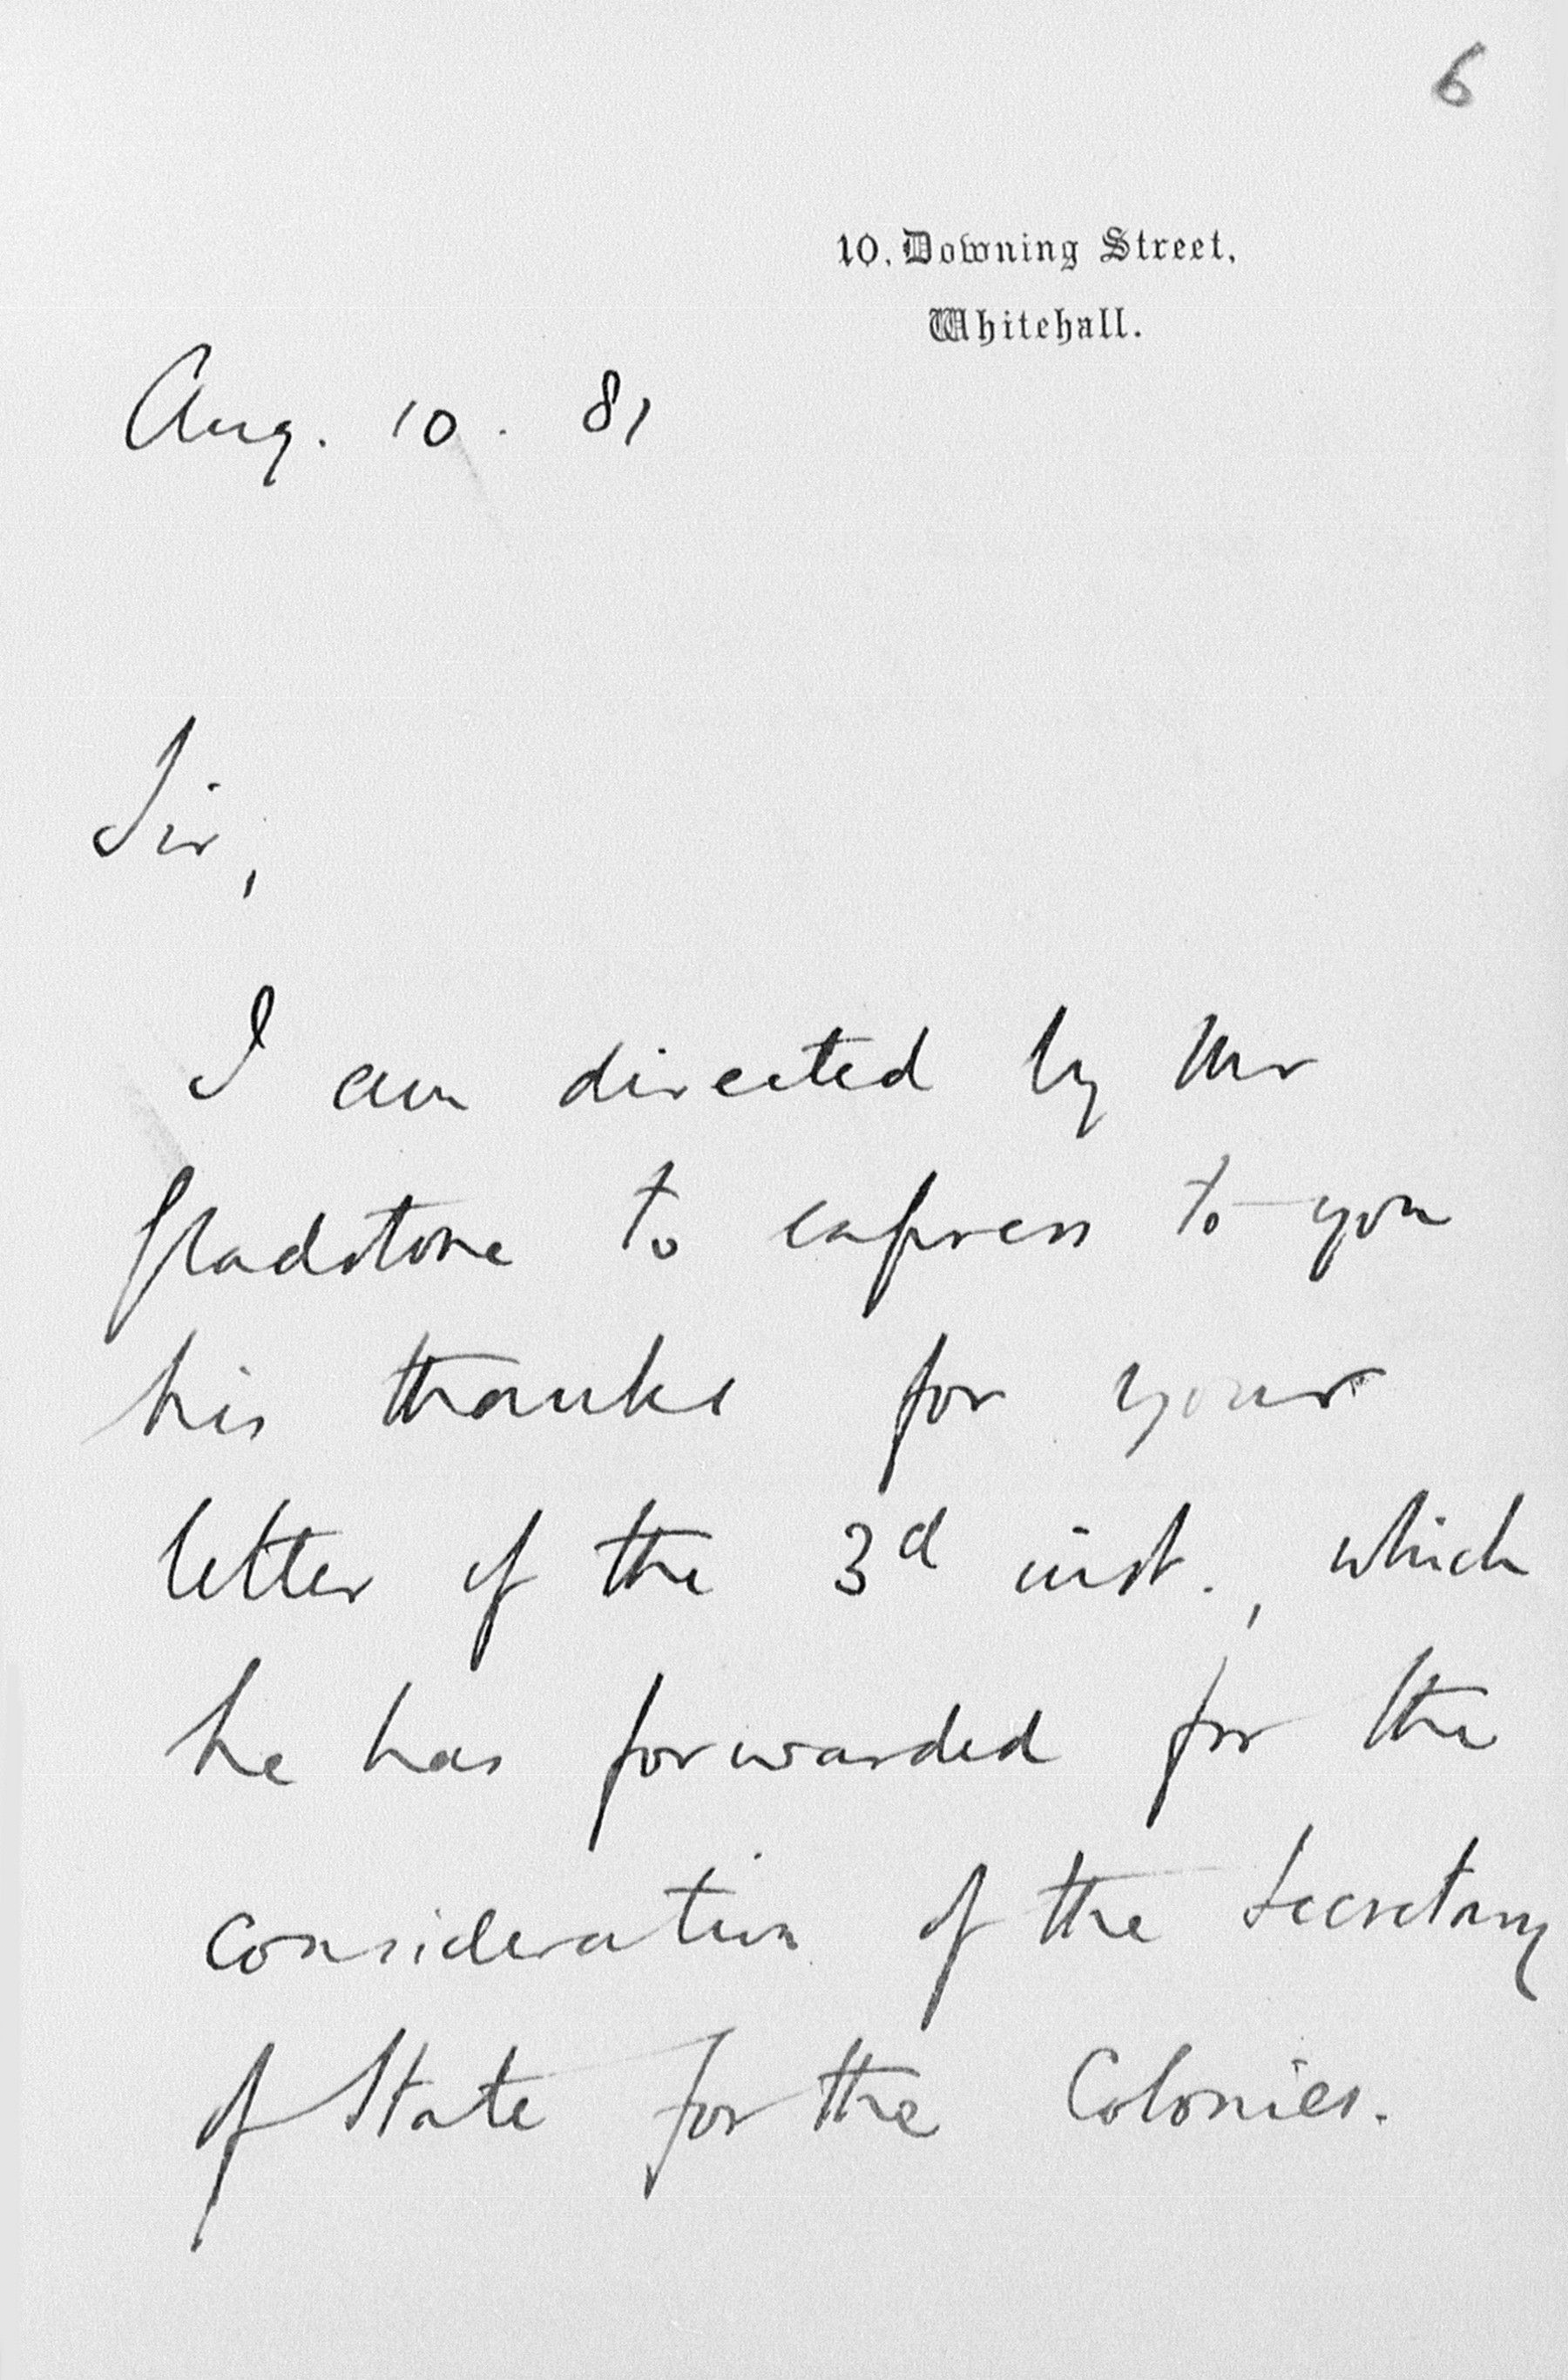 6
10, Downing Street,
Whitehall.
Aug. 10. 81
Sir,
I am directed by Mr
Gladstone to express to you
his thanks for your
letter of the 3d inst., which
he has forwarded for the
consideration of the Secretary
of State for the Colonies.